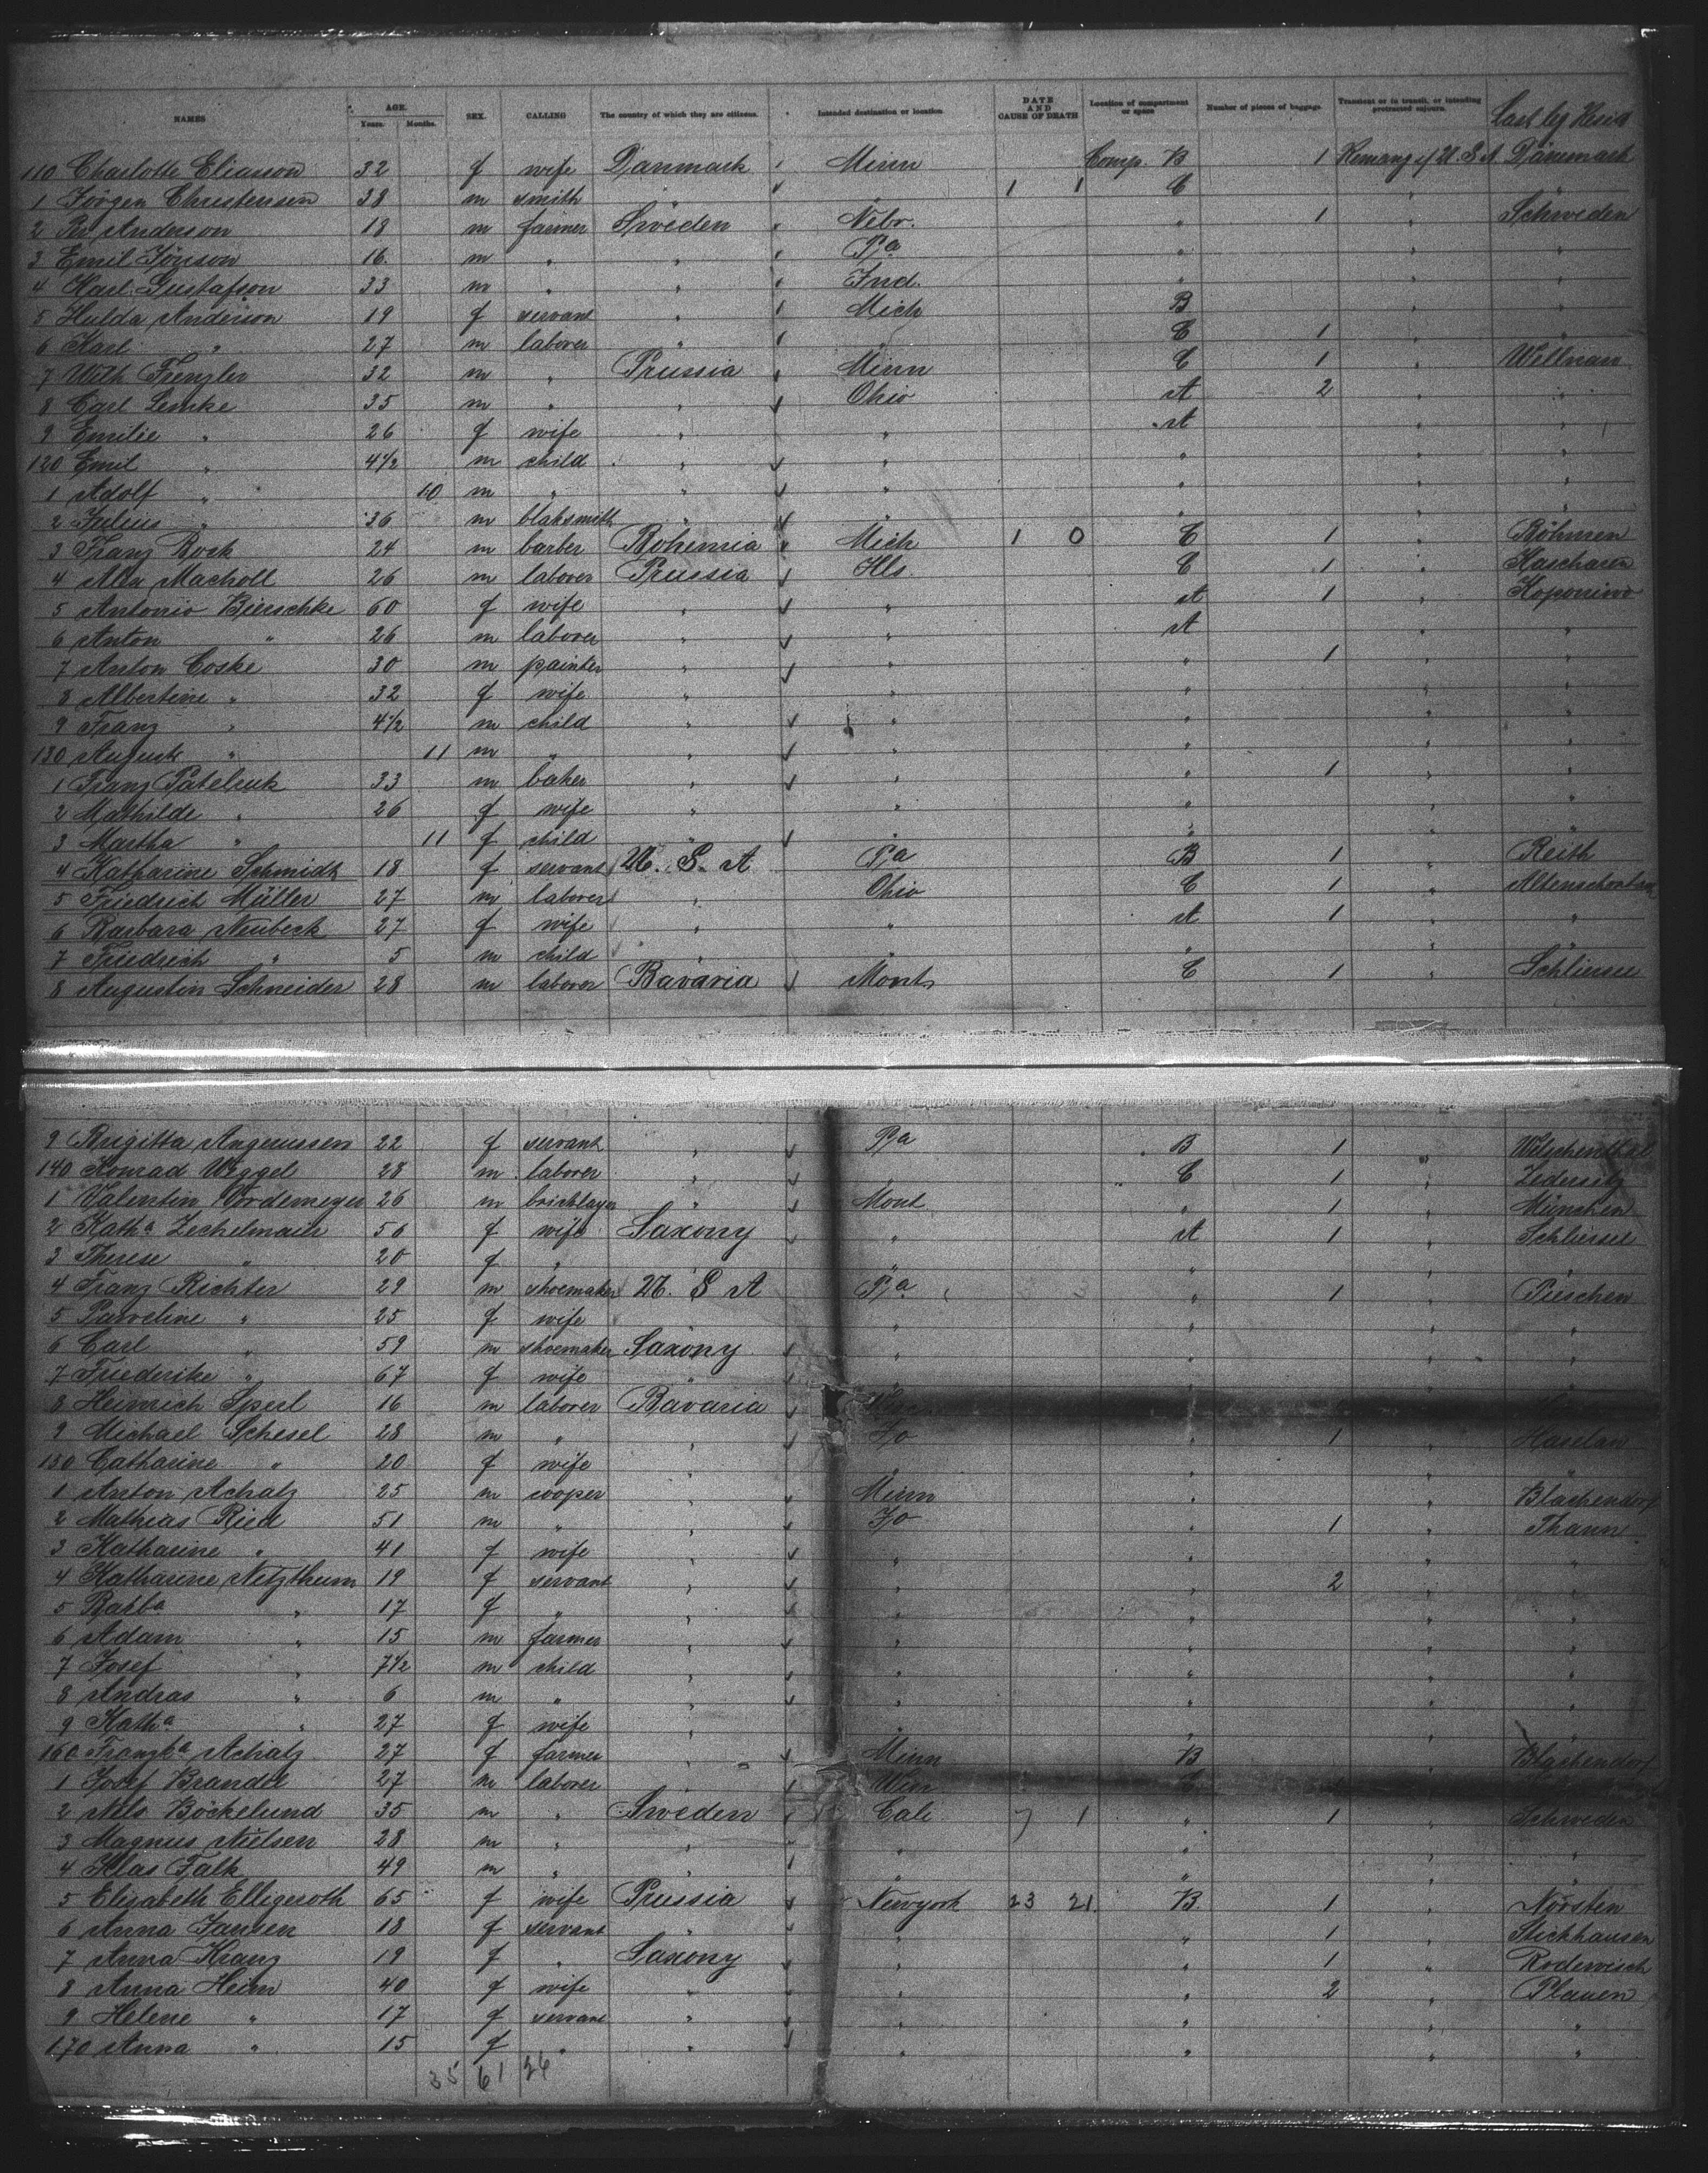 NAMES AGE. Years. Months. SEX. CALLING The country of which they are citizens. Intended destination or location DATE AND CAUSE OF DEATH Location of compartment or space Number of pieces of baggage. Transient or in transit, or intending protracted sojourn. Last leg Resid
110 Charlotte Eliasson 32 f wife Danmark Minn Comp. B 1 Danmark
1 Jörgen Christensen 38 m smith " " 1 1 C "
2 Pr Anderson 18 m farmer Sweden Nebr. " 1 " Schweden
3 Emil Jönson 16 m " " Pa " " "
4 Karl Gustafson 33 m " " Ind. " " "
5 Hulda Anderson 19 f servant " Mich B " "
6 Karl " 27 m laborer " " C 1 " "
7 Wilh Frenzler 32 m " Prussia Minn C 1 " Wellnau
8 Carl Lemke 35 m " " Ohio A 2 " "
9 Emilie " 26 f wife " " A " "
120 Emil " 4½ m child " " " " "
1 Adolf " 10 m " " " " " "
2 Julius " 36 m blaksmith " " " " "
3 Franz Rock 24 m barber Bohemia Mich 1 0 C 1 " Böhmen
4 Alex Macholl 26 m laborer Prussia Ills. C 1 " Kascharen
5 Antonio Bierschke 60 f wife " " A 1 " Koponiwo
6 Anton " 26 m laborer " " A " "
7 Anton Coske 30 m painter " " " 1 " "
8 Albertine " 32 f wife " " " " "
9 Franz " 4½ m child " " " " "
130 August " 11 m " " " " " "
1 Franz Patelzuk 33 m baker " " " 1 " "
2 Mathilde " 26 f wife " " " " "
3 Martha " 11 f child " " " " "
4 Katharine Schmidt 18 f servant U. S. A Pa B 1 " Reith
5 Friedrich Müller 27 m laborer " Ohio C 1 "
6 Barbara Neubeck 27 f wife " " A 1 " "
7 Friedrich " 5 m child " " " " "
8 Augustin Schneider 28 m laborer Bavaria Mont C 1 " Schliersee
9 Brigitta Angerussen 22 f servant " Pa B 1 "
140 Konrad Weggel 28 m laborer " " C 1 " Zedersitz
1 Valentin Vordemeyer 26 m bricklayer " Mont " 1 " München
2 Katha Zechelmair 56 f wife Saxony " A 1 " Schliersee
3 Therese " 20 f " " " " " "
4 Franz Richter 29 m shoemaker U. S A Pa " 1 " Pieschen
5 Pauveline " 25 f wife " " " " "
6 Carl " 59 m shoemaker Saxony " " " "
7 Friederike " 67 f wife " " " " "
8 Heinrich Sperl 16 m laborer Bavaria
9 Michael Schesel 28 m " " Jo " 1 " Haselau
150 Catharine " 20 f wife " " " " "
1 Anton Achatz 25 m cooper " Minn " " Blachendorf
2 Mathias Ried 51 m " " Jo " 1 " Thann
3 Katharine " 41 f wife " " " " "
4 Katharine Netzthum 19 f servant " " " 2 " "
5 Barba " 17 f " " " " " "
6 Adam " 15 m farmer " " " " "
7 Josef " 7½ m child " " " " "
8 Andras " 6 m " " " " " "
9 Katha " 27 f wife " " " " "
160 Franzka Achatz 27 f farmer " Minn B " Blachendorf
1 Josef Brandtl 27 m laborer "
2 Nels Böckelund 35 m " Sweden Cali. 7 1 " 1 " Schweden
3 Magnus Nielsen 28 m " " " " " "
4 Klas Falk 49 m " " " " " "
5 Elizabeth Elligeroth 65 f wife Prussia Newyork 23 21. B. 1 " Nörsten
6 Anna Jansen 18 f servant " " " 1 " Stickhausen
7 Anna Kranz 19 f " Saxony " " 1 " Rodewisch
8 Anna Heim 40 f wife " " " 2 " Plauen
9 Helene " 17 f servant " " " " "
170 Anna " 15 f " " " " " "
35 61 26